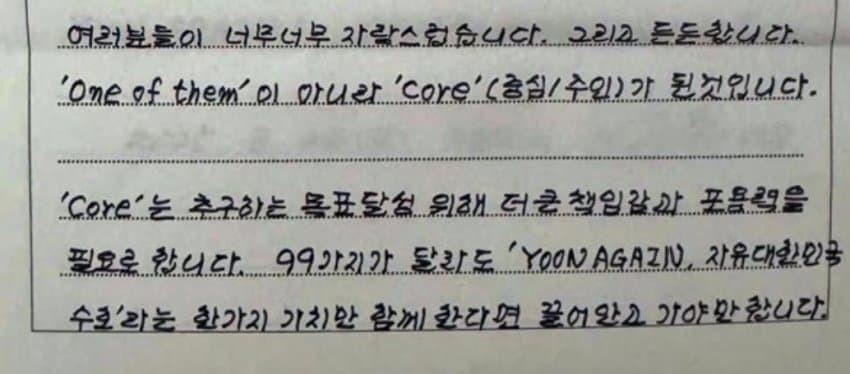 여러분들이 너무너무 자랑스럽습니다. 그리고 든든합니다.
'One of them'이 아니라 'Core'(중심/주인)가 된것입니다.
'Core'는 추구하는 목표달성 위해 더 큰 책임감과 포용력을
필요로 합니다. 99가지가 달라도 'YOON AGAIN, 자유대한민국
수호'라는 한가지 가치만 함께 한다면 끌어안고 가야만 합니다.